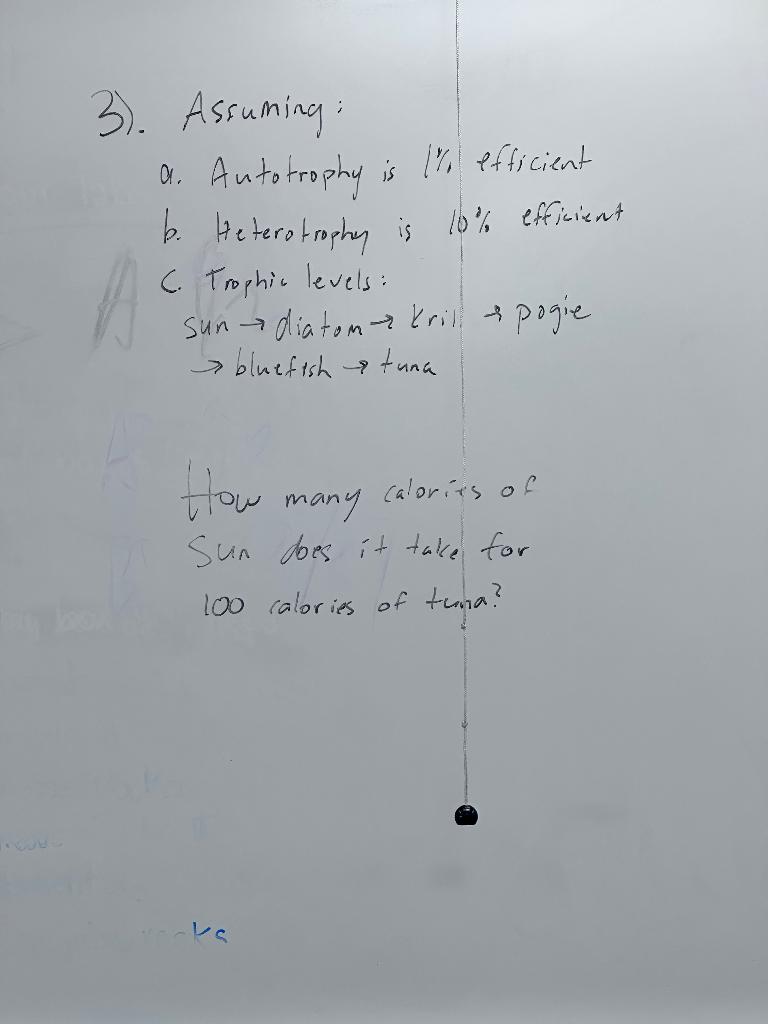 3). Assuming:
a. Autotrophy is 1% efficient
b. Heterotrophy is 10% efficient
c. Trophic levels:
sun → diatom → krill → pogie
→ bluefish → tuna
How many calories of
Sun does it take for
100 calories of tuna?